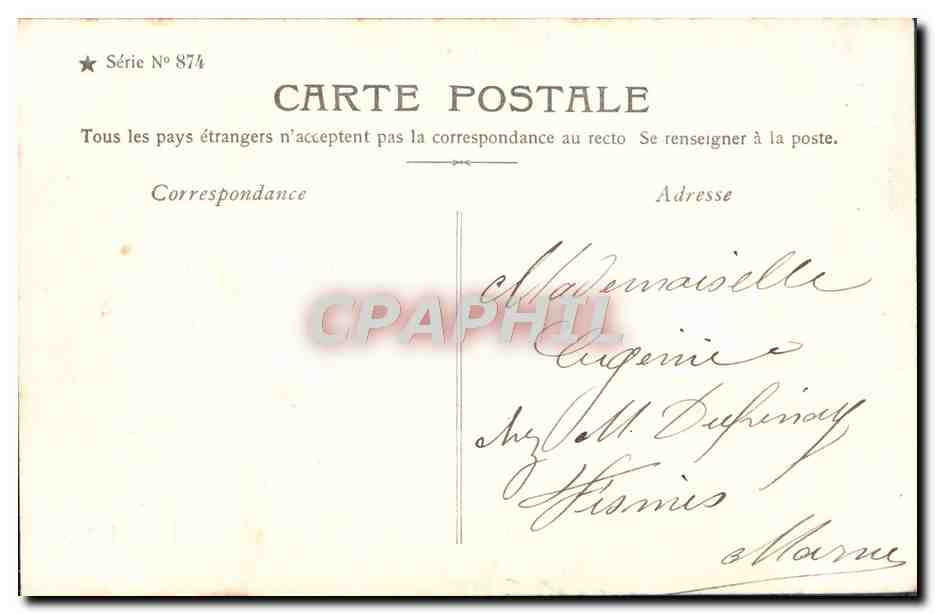 ★ Série Nº 874
CARTE POSTALE
Tous les pays étrangers n'acceptent pas la correspondance au recto Se renseigner à la poste.
Correspondance
Adresse
Mademoiselle
CPAPHIL
Eugenie
chez M.
Fismes
Marne